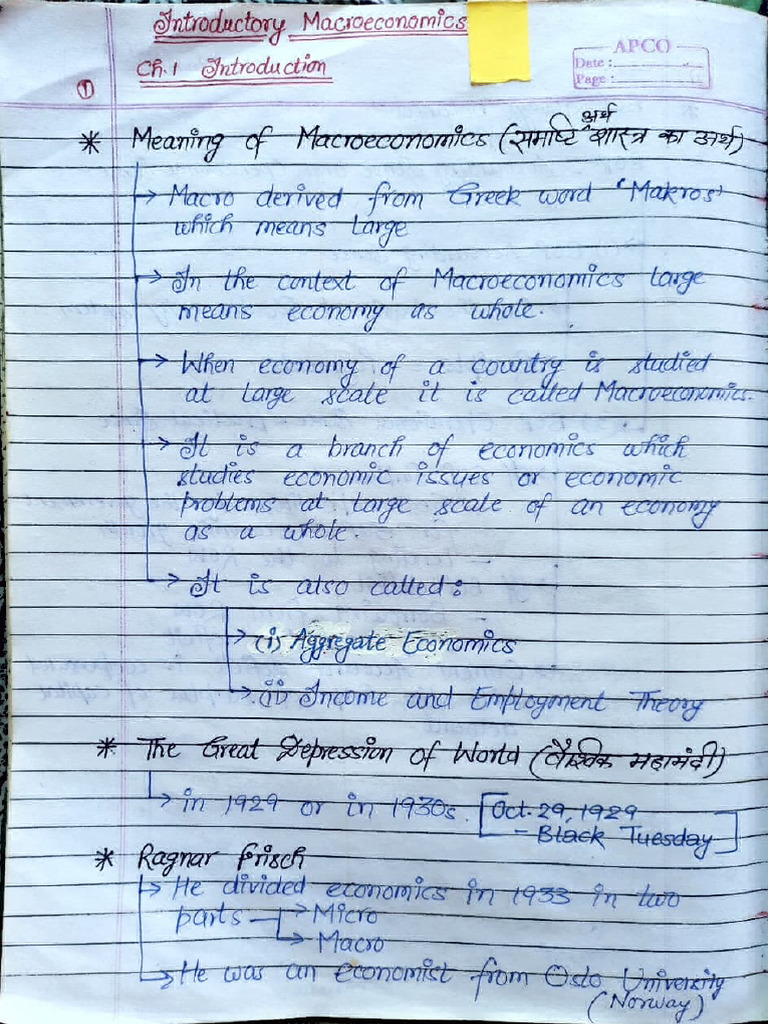 Introductory Macroeconomics
APCO
Date :
Page :
Ch.1 Introduction
①
* Meaning of Macroeconomics (समष्टि अर्थशास्त्र का अर्थ)
→ Macro derived from Greek word 'Makros'
which means Large
→ In the context of Macroeconomics Large
means economy as whole.
→ When economy of a country is studied
at Large scale it is called Macroeconomics.
→ It is a branch of economics which
studies economic issues or economic
problems at Large scale of an economy
as a whole.
→ It is also called :
→ (i) Aggregate Economics
→ (ii) Income and Employment Theory
* The Great Depression of World (वैश्विक महामंदी)
→ in 1929 or in 1930s. [Oct. 29, 1929
- Black Tuesday]
* Ragnar Frisch
→ He divided economics in 1933 in two
parts → Micro
→ Macro
→ He was an economist from Oslo University
(Norway)